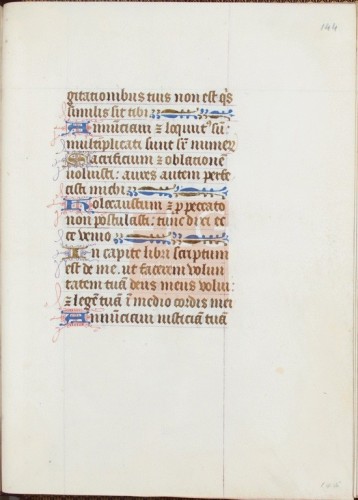 144
gitationibus tuis non est q̃s
similis sit tibi
Annunciavi ⁊ locutꝰ sũ:
multiplicati sunt sr̃ numeꝝ
Sacrificium ⁊ oblationẽ
noluisti: aures autem perfe
cisti michi
Holocaustum ⁊ ꝓ peccato
non postulasti: tunc dixi ec
ce venio
In capite libri scriptum
est de me. ut facerem volun
tatem tuã deus meus volui:
⁊ legẽ tuã ĩ medio cordis mei
Annũciavi iusticiã tuã